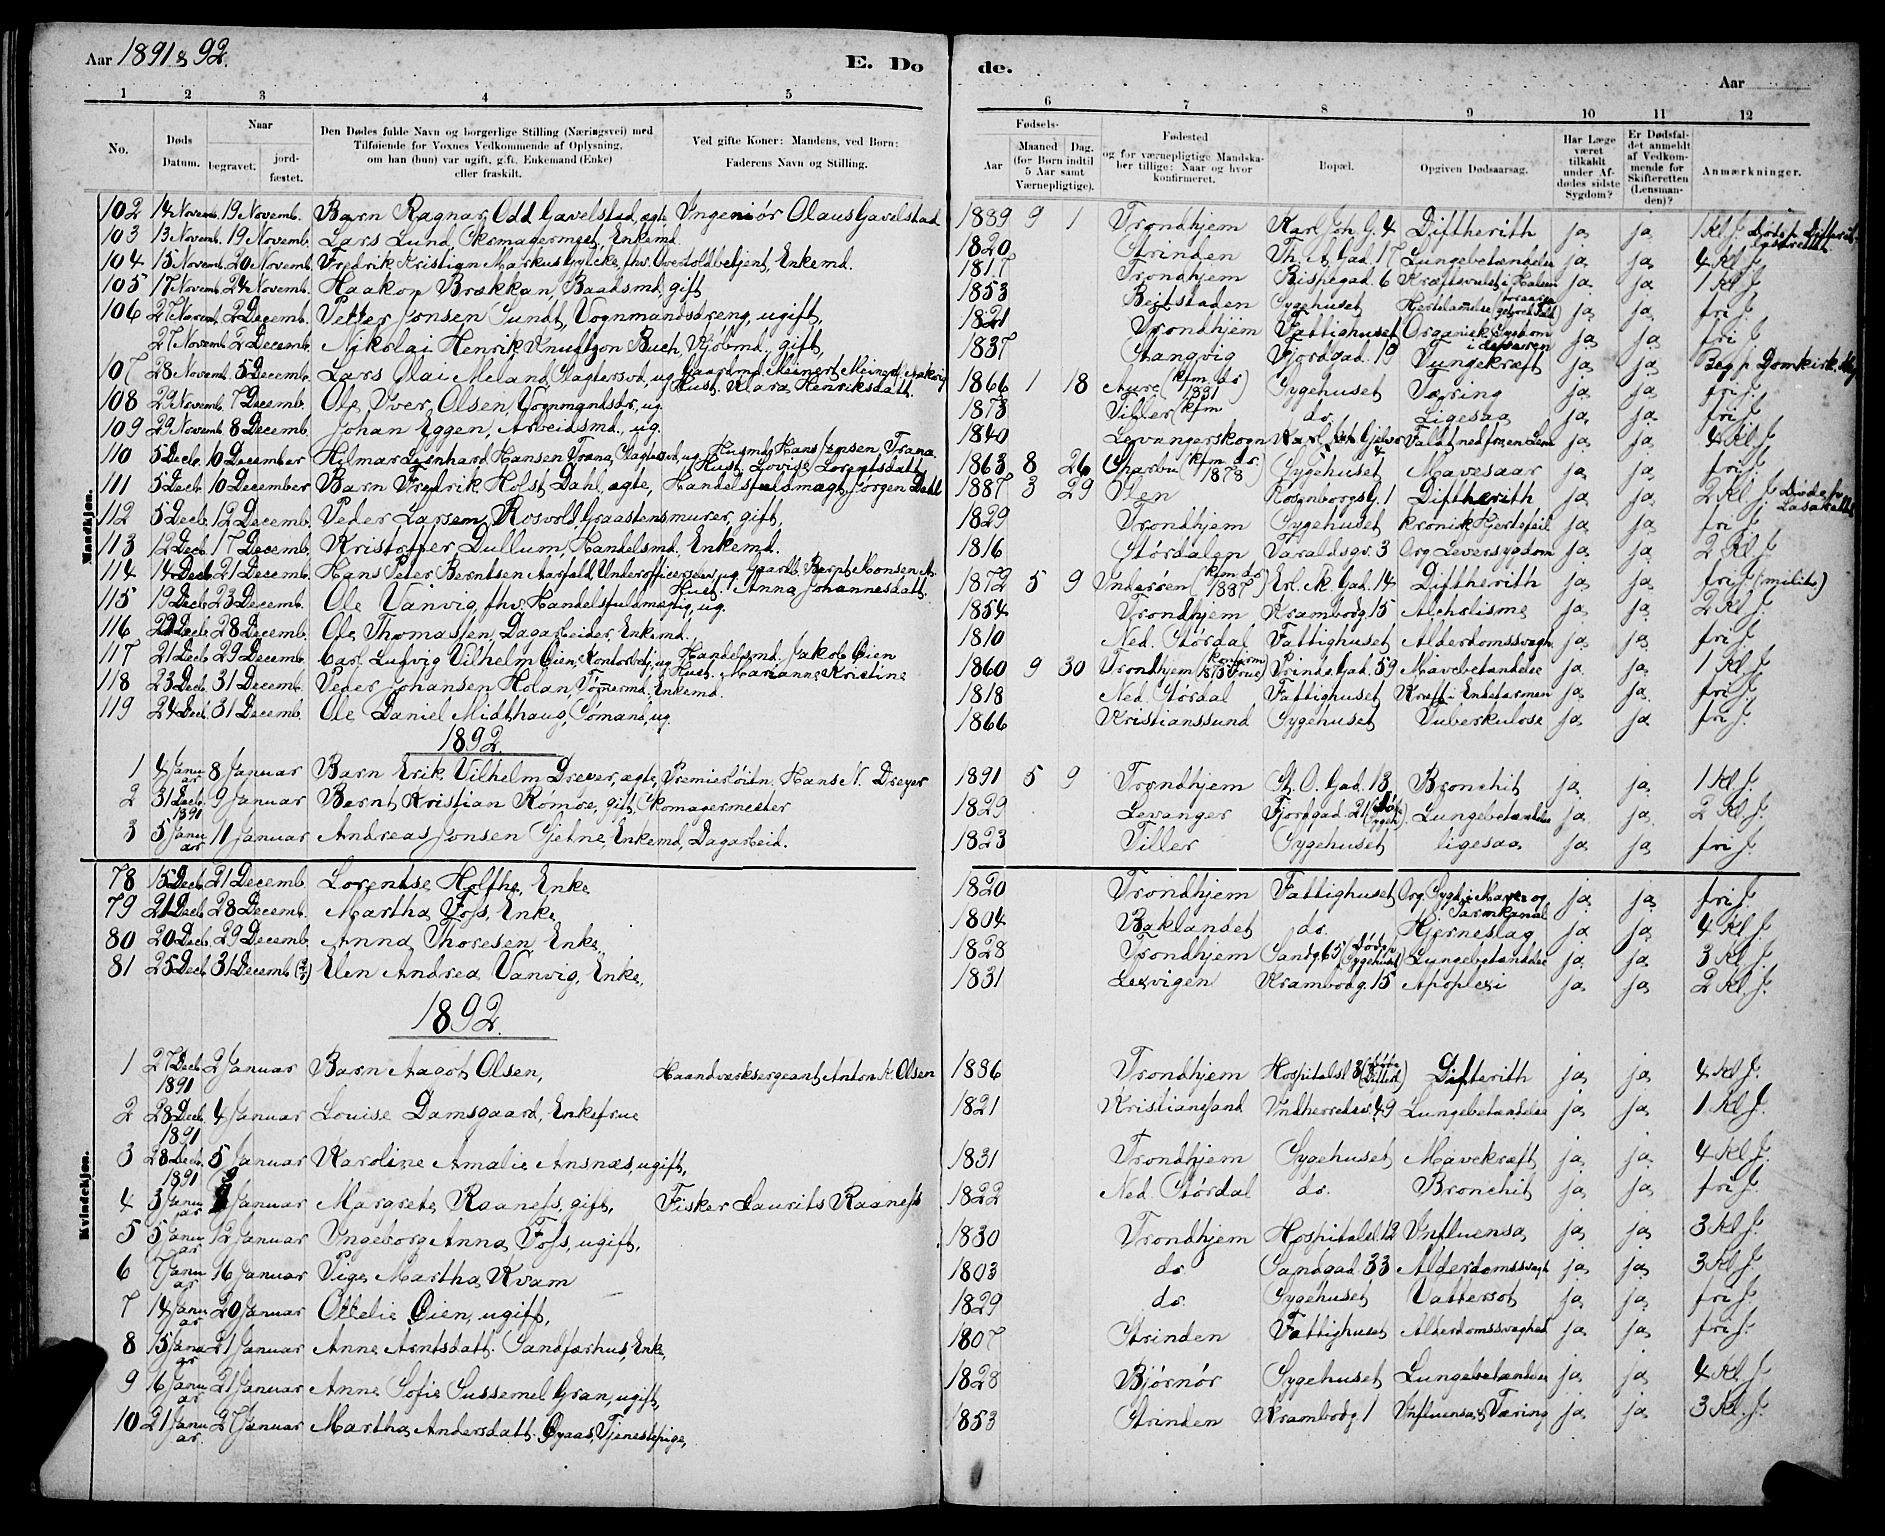 Aar 1891 & 92.
E. Do
de.
Aar
1 2 3 4 5 6 7 8 9 10 11 12
No.
Døds Datum.
Naar begravet. jordfæstet.
Den Dødes fulde Navn og borgerlige Stilling (Næringsvei) med
Tilføiende for Voxnes Vedkommende af Oplysning,
om han (hun) var ugift, gift, Enkemand (Enke)
eller fraskilt.
Ved gifte Koner: Mandens, ved Børn:
Faderens Navn og Stilling.
Fødsels-
Aar Maaned (for Børn indtil 5 Aar samt Værnepligtige). Dag.
Fødested
og for værnepligtige Mandskaber tillige: Naar og hvor konfirmeret.
Bopæl.
Opgiven Dødsaarsag.
Har Læge været tilkaldt under Afdødes sidste Sygdom?
Er Dødsfaldet anmeldt af Vedkommende for Skifteretten (Lensmanden)?
Anmærkninger.
Mandkjøn.
102 14 Novemb. 19 Novemb. Barn Ragnar Odd Gavelstad, ægte Ingeniør Olaus Gavelstad 1889 9 1 Trondhjem Karl Joh. G. 4 Diftherith ja ja 1 Kl. J.
103 13 Novemb. 19 Novemb. Lars Lund, Skomagermest, Enkemd. 1820 Strinden Th. A. Gad. 17 Lungebetændelse ja ja 4 Kl. J.
104 15 Novemb. 20 Novemb. Fredrik Kristian Markus Lycke, fhv. Overtoldbetjent, Enkemd. 1817 Trondhjem Bispegad. 6 Kræftsvulst i Halsen ja ja 1 Kl. J.
105 17 Novemb. 24 Novemb. Haakon Brækkan, Baadsmd, gift 1853 Beitstaden Sygehuset ja ja fri J.
106 27 Novemb. 2 Decemb. Petter Jonsen Sundt, Vognmandsdreng, ugift, 1821 Trondhjem Fattighuset Organisk Sygdom ja ja fri J.
27 Novemb. 2 Decemb. Nikolai Henrik Knudtzon Buch, Kjøbmd. gift, 1837 Stangvig Fjordgad. 10 Tungekræft ja ja Beg. p. Domkirk.
107 28 Novemb. 5 Decemb. Lars Olai Meland, Slagtersvd, ug. Gaardmd. Meinert Meinert
Hust. Klara Henriksdatt. 1866 1 18 Aure (kfm. do. 1881) Sygehuset Tæring ja ja fri J.
108 29 Novemb. 7 Decemb. Ole Iver Olsen, Vognmandsdr, ug. 1873 Tiller (kfm do. Ligesaa ja ja fri J.
109 29 Novemb. 8 Decemb. Johan Eggen, Arbeidsmd., ug. 1840 Levangerskogn ja ja 4 Kl. J.
110 5 Decb. 10 December Hilmar Leonhard Hansen Trana, ug. Husmd. Hans Jensen Trana
Hust. Lovise Lorentsdatt. 1863 8 26 Sparbu (kfm. do. 1878) Sygehuset Mavesaar ja ja fri J.
111 5 Decb. 10 December Barn Fredrik Holst Dahl, ægte, Handelsfuldmægt, Jørgen Dahl 1887 3 29 Ølen Rosenborgs G. 1 Diftherith ja ja 2 Kl. J.
112 5 Decb. 12 Decemb. Peder Larsen Rosvold, Graastensmurer, gift, 1829 Trondhjem Sygehuset kronisk Hjertefeil ja ja fri J.
113 12 Decb. 17 Decemb. Kristoffer Dullum, Handelsmd. Enkemd. 1816 Størdalen Taraldsgv. 3 Org. Leversygdom ja ja 2 Kl. J.
114 14 Decb. 21 Decemb. Hans Peder Berntsen Aarfald, Underofficerselev, ug. Gaardb. Bernt Monsen
Hust. Anna Johannesdatt. 1872 5 9 Inderøen (kfm. do. 1887) Erl. Sk. Gad. 14 Diftherith ja ja fri J. (milits)
115 19 Decb. 23 Decemb. Ole Vanvig, fhv. Handelsfuldmægtig, ug. 1854 Trondhjem Krambodg. 15 Alcholisme ja ja 2 Kl. J.
116 22 Decb. 28 Decemb. Ole Thomassen, Dagarbeider, Enkemd. 1810 Ned. Størdal Fattighuset Alderdomssvagh ja ja fri J.
117 21 Decb. 29 Decemb. Carl Ludvig Vilhelm Øien, Kontorbetj, ug. Handelsmd. Jakob Øien
Hust. Marianne Kristine 1860 9 30 Trondhjem (konfirm. 1875 Frue) Prinds. Gad. 59 Mavebetændelse ja ja 1 Kl. J.
118 23 Decb. 31 Decemb. Peder Johansen Holan, Tømmermd. Enkemd. 1818 Ned. Størdal Fattighuset Kræft i Endetarmen ja ja fri J.
119 24 Decb. 31 Decemb. Ole Daniel Midthaug, Sømand, ug. 1866 Kristianssund Sygehuset Tuberkulose ja ja fri J.
1892.
1 4 Januar 8 Januar Barn Erik Vilhelm Dreyer, ægte, Premierløitn. Hans N. Dreyer 1891 5 9 Trondhjem St. O. Gad. 13 Bronchit ja ja 1 Kl. J.
2 31 Decb. 1891 9 Januar Bernt Kristian Rømoe, gift, Skomagermester 1829 Levanger Fjordgad. 21 Lungebetændelse ja ja 2 Kl. J.
3 5 Januar 11 Januar Andreas Jonsen Gjetne, Enkemd, Dagarbeid. 1823 Tiller Sygehuset ligesaa ja ja fri J.
Kvindekjøn.
78 15 Decb. 21 Decemb. Lorentse Holthe, Enke 1820 Trondhjem Fattighuset Org. Sygd. i Maven og Tarmkanal ja ja fri J.
79 21 Decb. 28 Decemb. Martha Foss, Enke 1804 Baklandet do. Hjerneslag ja ja 4 Kl. J.
80 20 Decb. 29 Decemb. Anna Thoresen, Enke 1828 Trondhjem Sandg. 65 (Død p. Sygehuset) Lungebetændelse ja ja 3 Kl. J.
81 25 Decb. 31 Decemb. Elen Andrea Vanvig, Enke, 1831 Lexvigen Krambodg. 15 Apoplexi ja ja 2 Kl. J.
1892.
1 27 Decb. 1891 2 Januar Barn Aagot Olsen, Haandværksergeant Anton K. Olsen 1886 Trondhjem Hospitalsl. 8 Difterith ja ja 4 Kl. J.
2 28 Decb. 1891 4 Januar Louise Damsgaard, Enkefrue 1821 Kristianssand Indherredsv. 49 Lungebetændelse ja ja 1 Kl. J.
3 28 Decb. 1891 5 Januar Karoline Amalie Ansnæs, ugift, 1831 Trondhjem Sygehuset Mavekræft ja ja 4 Kl. J.
4 3 Januar Januar Margrete Raaness, gift, Fisker Laurits Raaness 1822 Ned. Størdal do. Bronchit ja ja fri J.
5 5 Januar 12 Januar Ingeborg Anna Foss, ugift, 1830 Trondhjem Hospitalsl. 12 Influensa ja ja 3 Kl. J.
6 7 Januar 16 Januar Pige Martha Kvam 1803 do. Sandgad 33 Alderdomssvagh ja ja 3 Kl. J.
7 14 Januar 20 Januar Ottelie Øien, ugift, 1829 do. Sygehuset Vattersot ja ja fri J.
8 15 Januar 21 Januar Anne Arntsdatt. Sandfærhus, Enke, 1807 Strinden Fattighuset Alderdomssvaghed ja ja fri J.
9 16 Januar 21 Januar Anne Sofie Sussemel Gran, ugift, 1828 Bjørnør Sygehuset Lungebetændelse ja ja 4 Kl. J.
10 21 Januar 27 Januar Martha Andersdatt. Øyaas, Tjenestepige, 1853 Strinden Krambodg. 1 Influensa & Tæring ja ja 3 Kl. J.